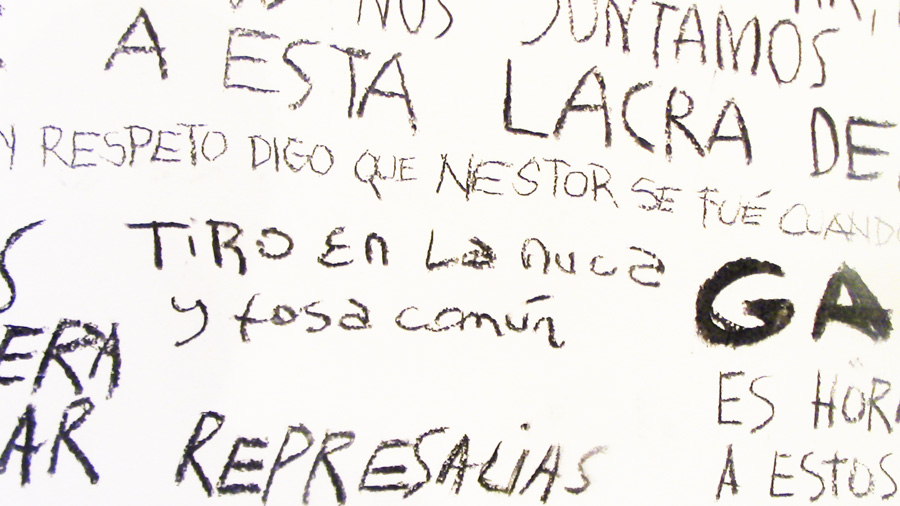 NOS JUNTAMOS
A ESTA LACRA DE
Y RESPETO DIGO QUE NESTOR SE FUÉ CUANDO
TIRO En La nuca
y fosa común
GA
ERA
ES HORA
AR REPRESALIAS
A ESTOS